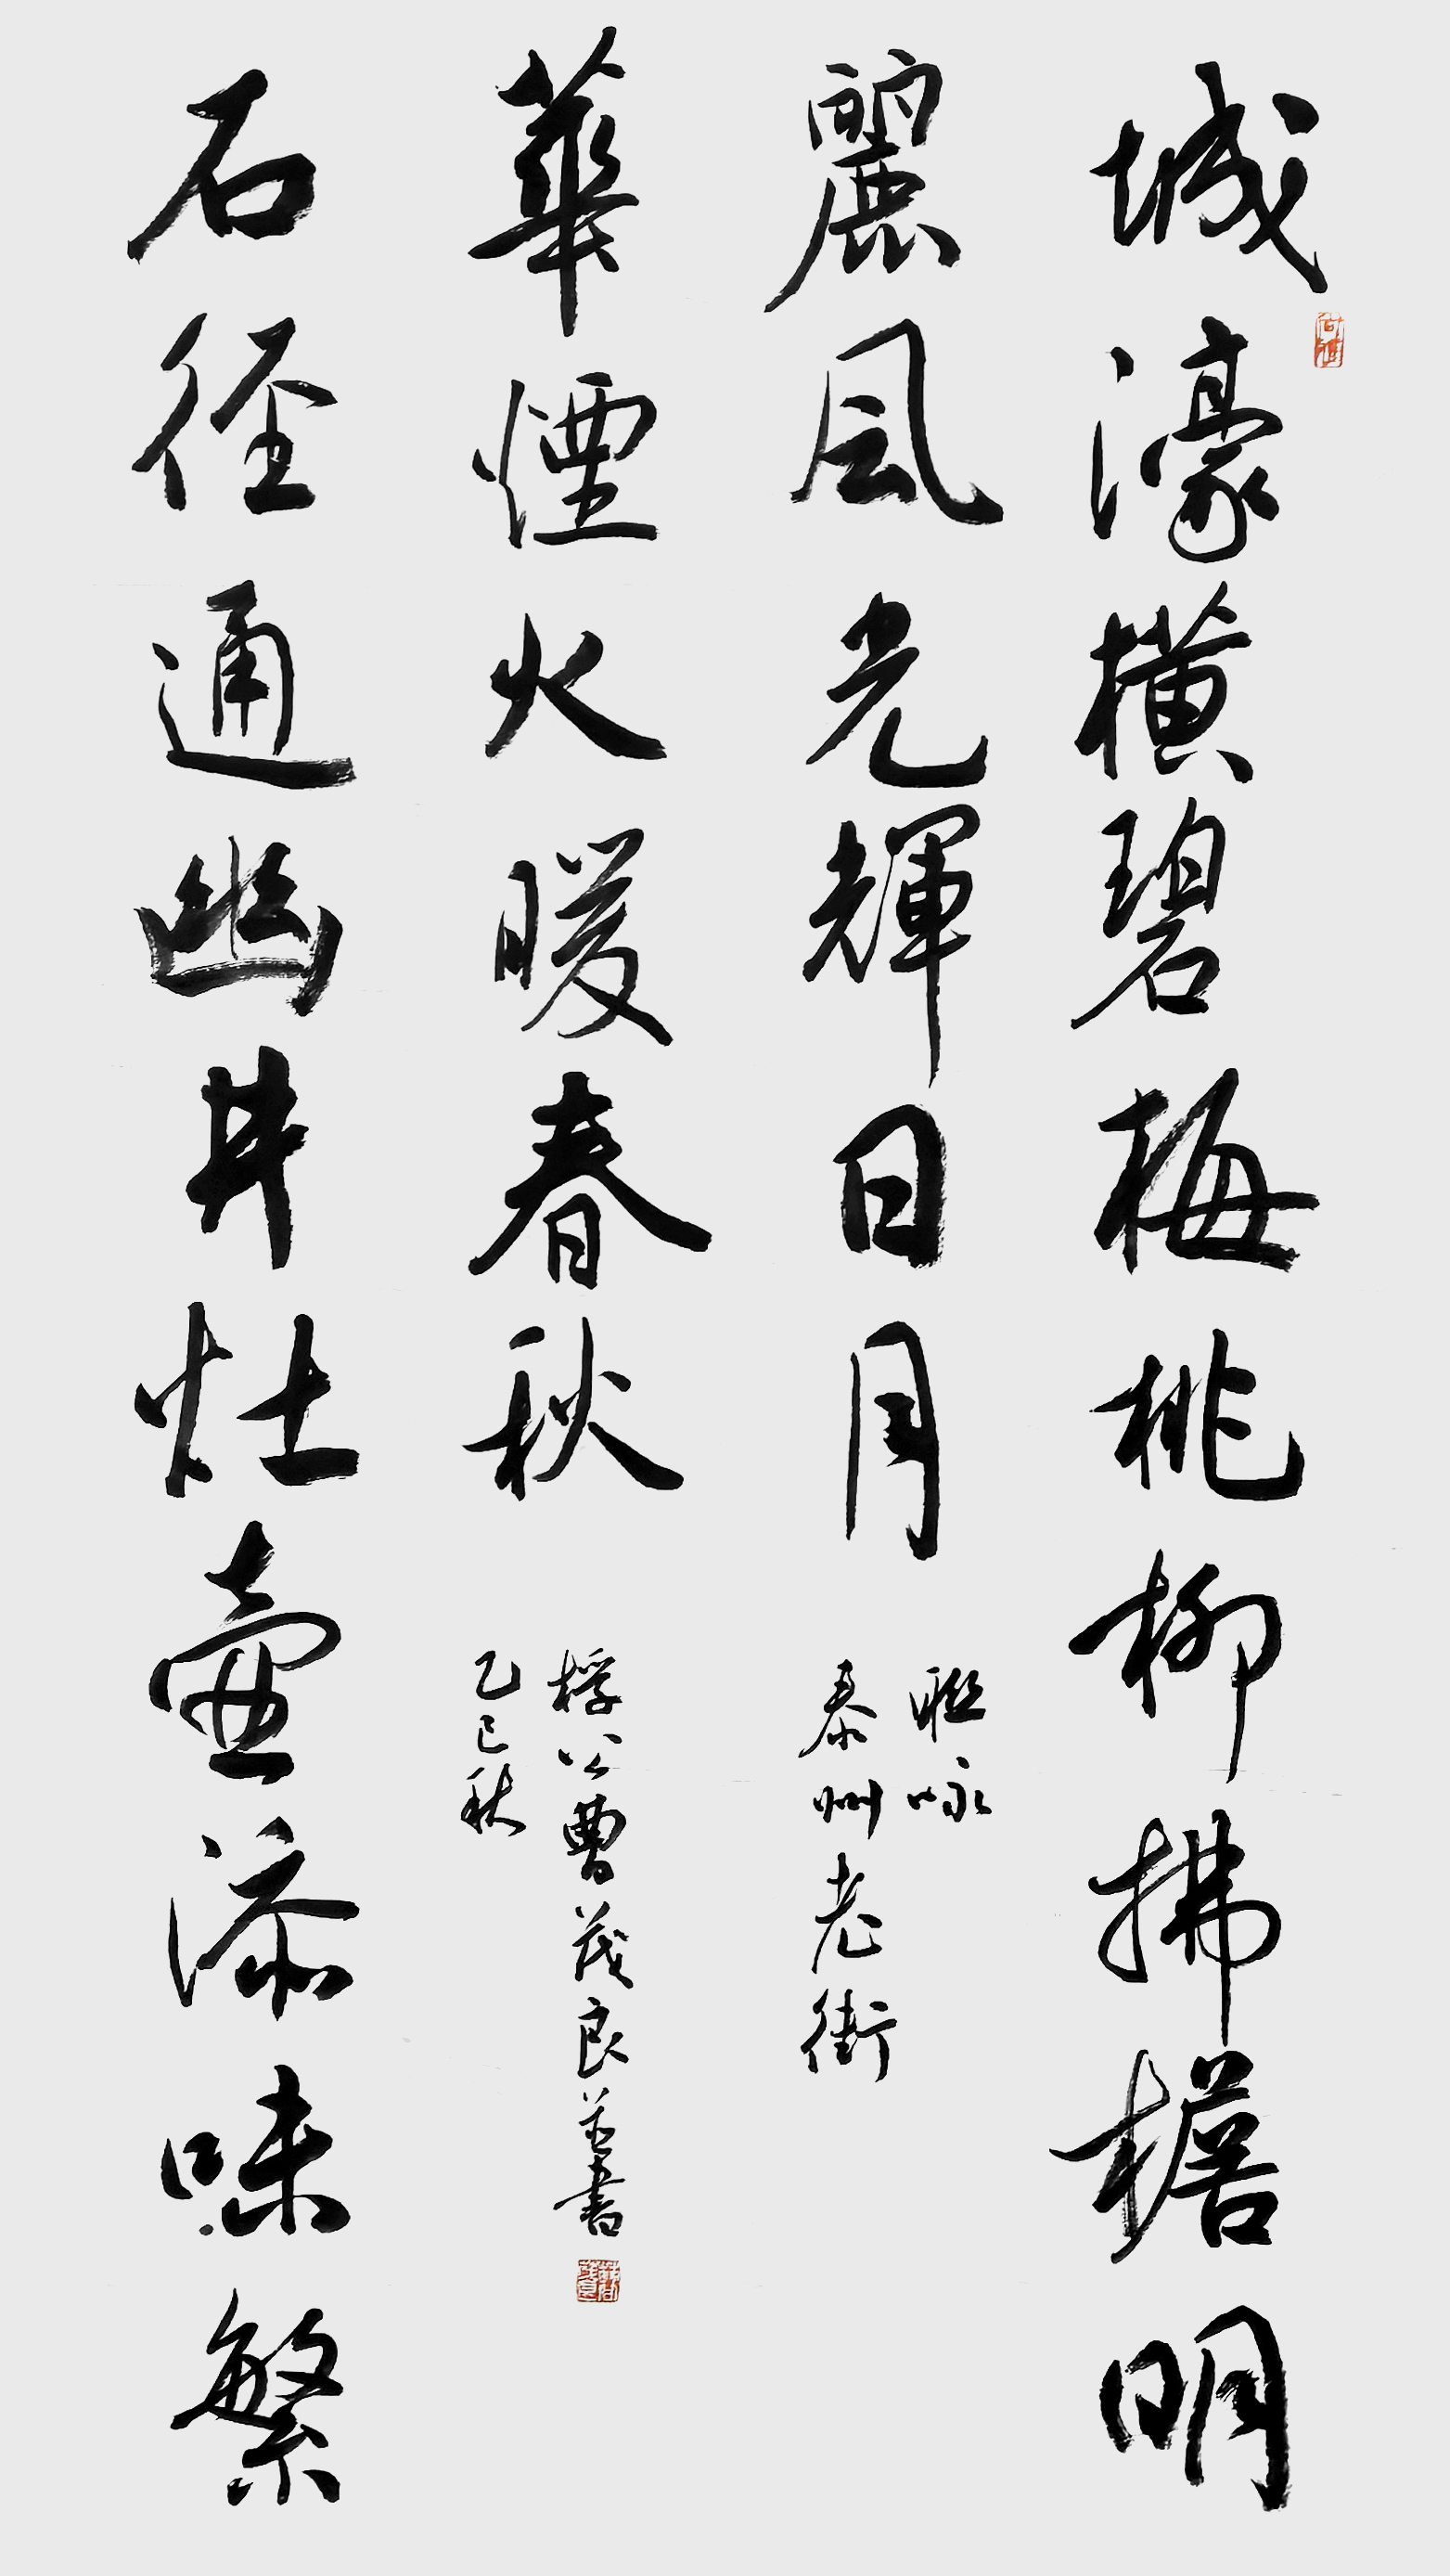 城濠横碧梅桃柳拂檐明
麗風光輝日月
聯咏
泰州老街
石径通幽井灶壺添味繁
華煙火暖春秋
乙巳秋
桴公曹茂良并書